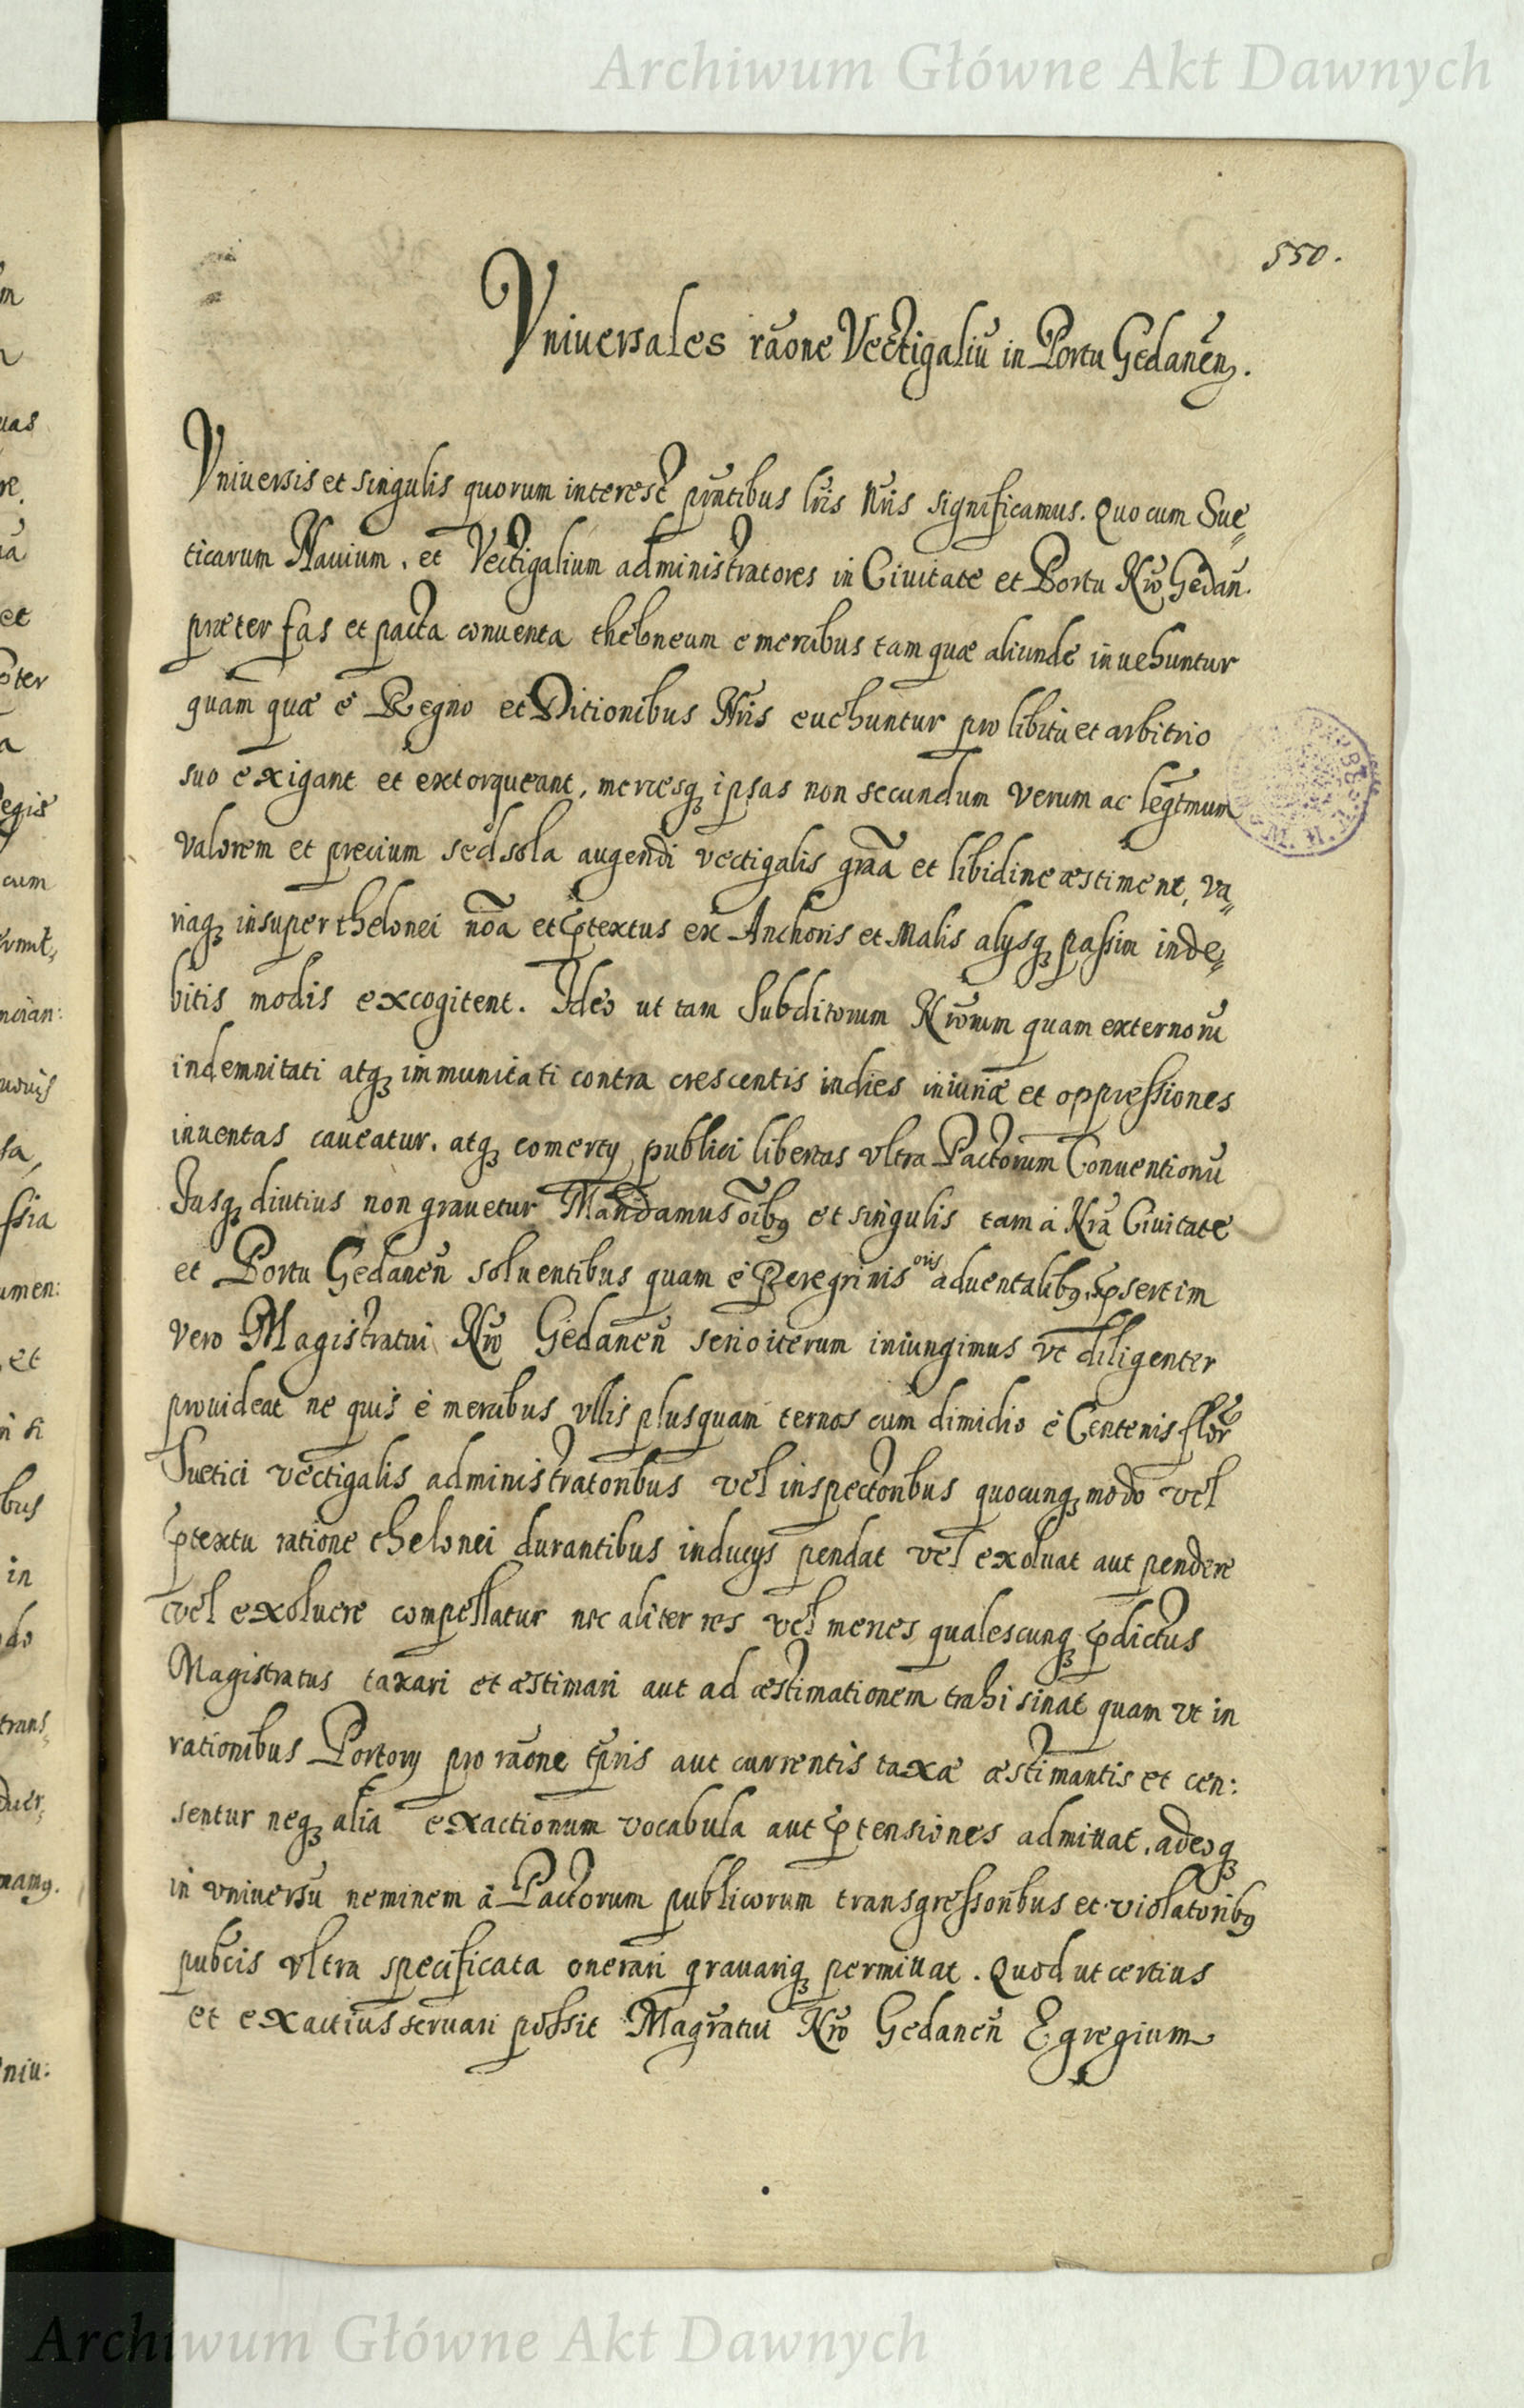 Archiwum Główne Akt Dawnych
550.
Vniuersales rãone Vectigaliũ in Portu Gedaneñ.
Vniuersis et singulis quorum interest pñtibus lris Nris significamus. Quo cum Sue„
ticarum Nauium, et Vectigalium administratores in Ciuitate et Portu Nro Gedañ.
præter fas et pacta conuenta theloneum e mercibus tam quæ aliunde inuehuntur
quam quæ è Regno et Ditionibus Nris euehuntur pro libitu et arbitrio
suo exigant et extorqueant, mercesq₃ ipsas non secundum verum ac legitmum
valorem et precium sed sola augendi vectigalis grãa et libidine æstiment, va„
riaq₃ insuper thelonei nõa et ptextus ex Anchoris et Malis alysq₃ passim inde„
bitis modis excogitent. Ideo ut tam Subditorum Nrorum quam externorũ
indemnitati atq₃ immunitati contra crescentis indies iniuriæ et oppressiones
inuentas caueatur, atq₃ comercy publici libertas vltra Pactorum Conuentionũ
Jusq₃ diutius non grauetur Mandamus oĩbꝰ et singulis tam à Nra Ciuitate
et Portu Gedaneñ soluentibus quam è Peregrinis oris aduentatibꝰ, psertim
vero Magistratui Nro Gedaneñ serio iterum iniungimus vt diligenter
prouideat ne quis è mercibus vllis plusquam ternos cum dimidio è Centenis flor
Suetici vectigalis administratoribus vel inspectoribus quocunq₃ modo vel
ptextu ratione thelonei durantibus inducys pendat vel exoluat aut pendere
vel exoluere compellatur nec aliter res vel merces qualescunq₃ pdictus
Magistratus taxari et æstimari aut ad æstimationem trahi sinat quam vt in
rationibus Portory pro rãone tpris aut currentis taxæ æstimantis et cen:
sentur neq₃ alia exactionum vocabula aut ptensiones admittat, adeoq₃
in vniuersũ neminem à Pactorum publicorum transgressoribus et violatoribꝰ
pubcis vltra specificata onerari grauariq₃ permittat. Quod ut certius
et exactius seruari possit Magratui Nro Gedaneñ Egregium
Archiwum Główne Akt Dawnych